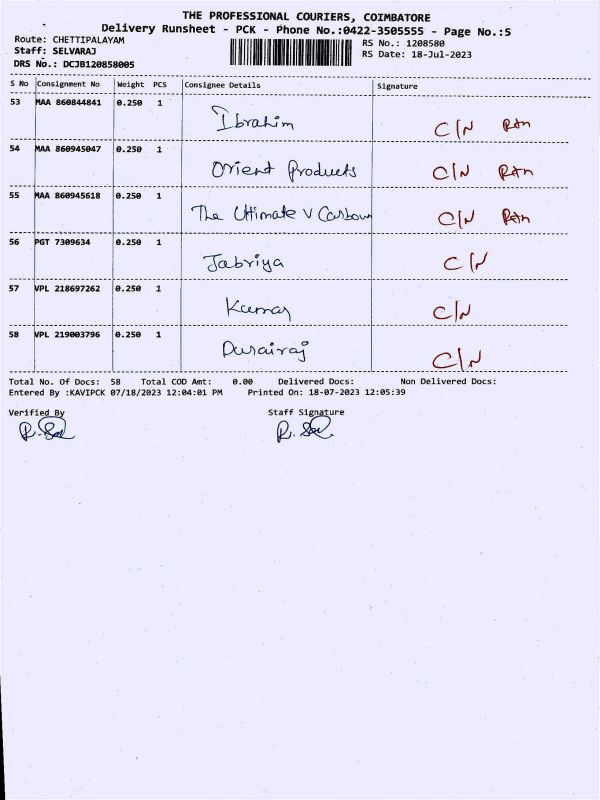 THE PROFESSIONAL COURIERS, COIMBATORE
Delivery Runsheet - PCK - Phone No.:0422-3505555 - Page No.:5
Route: CHETTIPALAYAM RS No.: 1208580
Staff: SELVARAJ RS Date: 18-Jul-2023
DRS No.: DCJB120858005
S No Consignment No Weight PCS Consignee Details Signature
53 MAA 860844841 0.250 1 Ibrahim C/N
54 MAA 860945047 0.250 1 Orient Products C/N
55 MAA 860945618 0.250 1 The Ultimate V C/N
56 PGT 7309634 0.250 1 Jabriya C/N
57 VPL 218697262 0.250 1 Kumar C/N
58 VPL 219003796 0.250 1 Durairaj C/N
Total No. Of Docs: 58 Total COD Amt: 0.00 Delivered Docs: Non Delivered Docs:
Entered By :KAVIPCK 07/18/2023 12:04:01 PM Printed On: 18-07-2023 12:05:39
Verified By Staff Signature